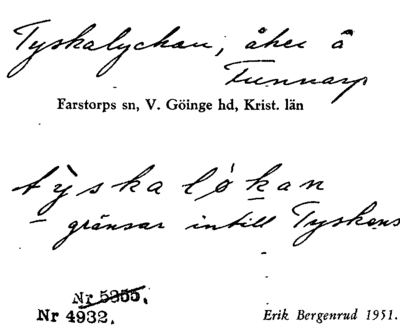 Tyskalyckan, åker å
Tunnarp
Farstorps sn, V. Göinge hd, Krist. län
tỳskaløkan
gränsar intill Tyskens
Nr 5355.
Nr 4932.
Erik Bergenrud 1951.